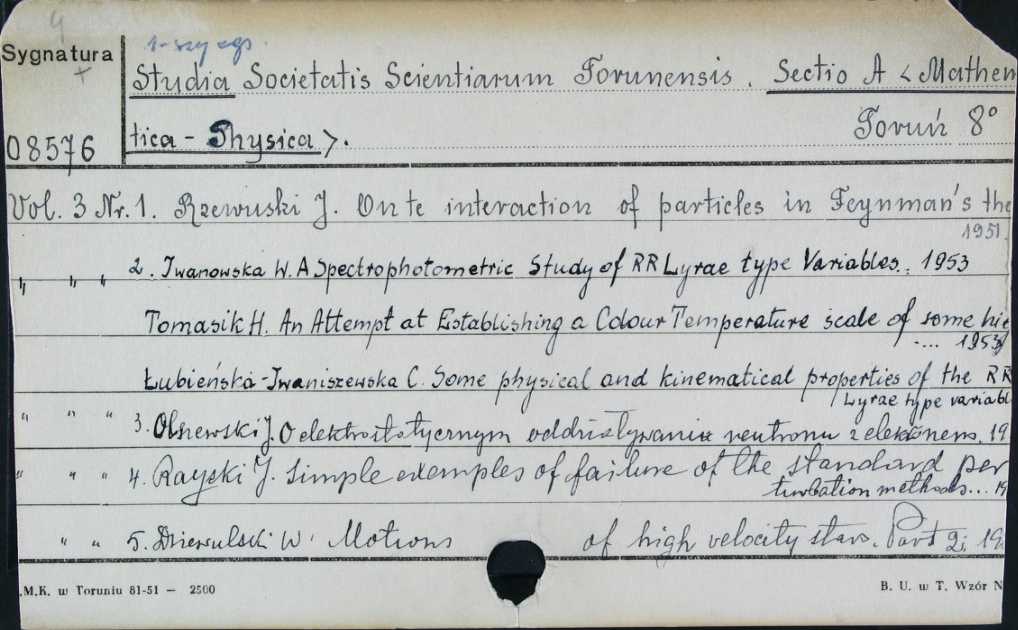 4
1-szy egz.
Sygnatura
Studia Societatis Scientiarum Torunensis. Sectio A < Mathem
08576
tica - Physica >.
Toruń 8°
Vol. 3 Nr. 1. Rzewuski J. On te interaction of particles in Feynman's the
1951.
" " " 2. Iwanowska W. A Spectrophotometric Study of RR Lyrae type Variables. 1953
Tomasik H. An Attempt at Establishing a Colour Temperature scale of some
.... 1953
Łubieńska-Iwaniszewska C. Some physical and kinematical properties of the RR
Lyrae type variabl
" " " 3. Olszewski J. O elektrostatycznym oddziaływaniu neutronu z elektronem. 19
" " " 4. Rayski J. Simple exemples of failure of the standard per
turbation methods... 19
" " 5. Dziewulski W. Motions of high velocity stars. Part 2; 19
.M.K. w Toruniu 81-51 — 2500
B. U. w T. Wzór N